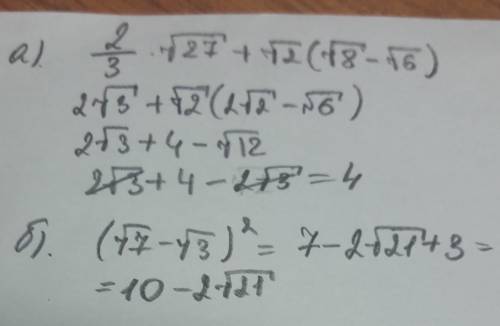 а). 2/3 · √27 + √2 (√8 - √6)
2√3 + √2 (2√2 - √6)
2√3 + 4 - √12
2√3 + 4 - 2√3 = 4
б). (√7 - √3)² = 7 - 2√21 + 3 =
= 10 - 2√21